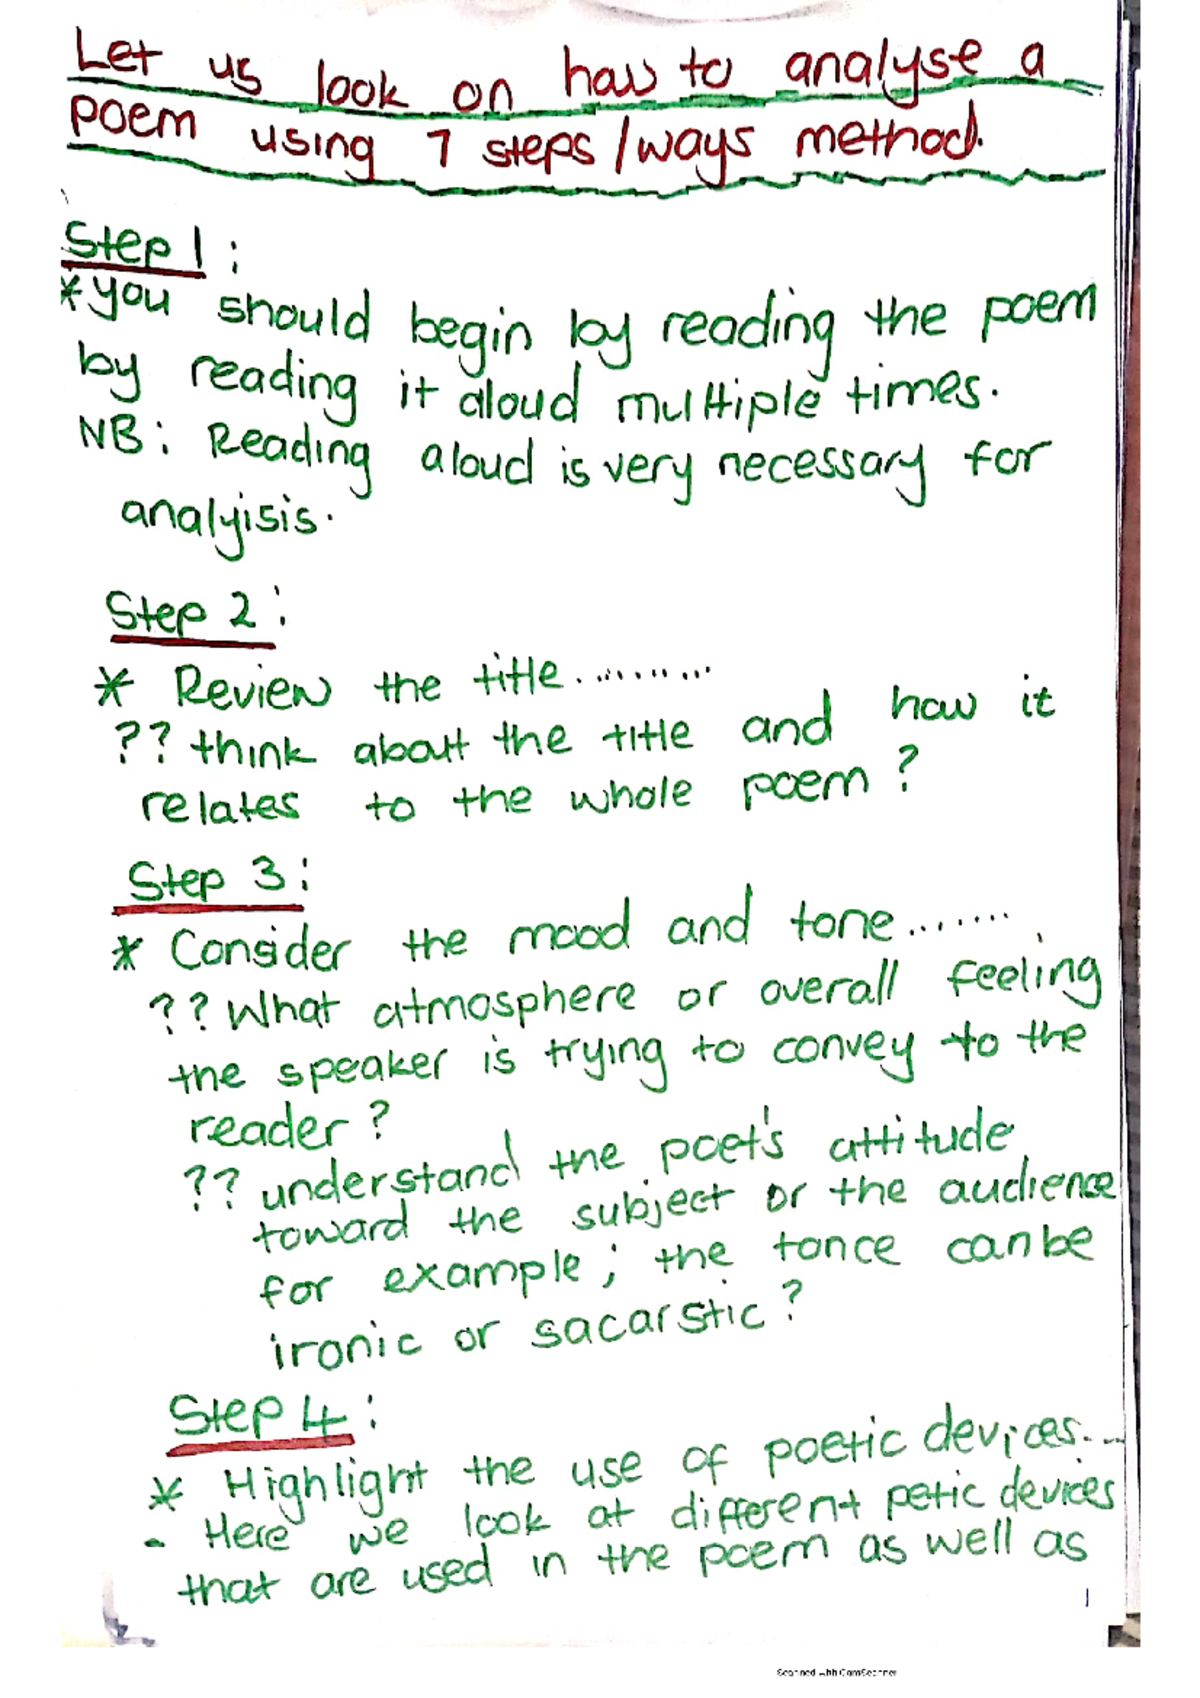 Let us look on how to analyse a
poem using 7 steps/ways method.
Step 1:
*you should begin by reading the poem
by reading it aloud multiple times.
NB: Reading aloud is very necessary for
analyisis.
Step 2:
* Review the title..........
?? think about the title and how it
relates to the whole poem?
Step 3:
* Consider the mood and tone........
?? What atmosphere or overall feeling
the speaker is trying to convey to the
reader?
?? understand the poet's attitude
toward the subject or the audience
for example; the tonce can be
ironic or sacarstic?
Step 4:
* Highlight the use of poetic devices...
- Here we look at different petic devices
that are used in the poem as well as
1
Scanned with CamScanner